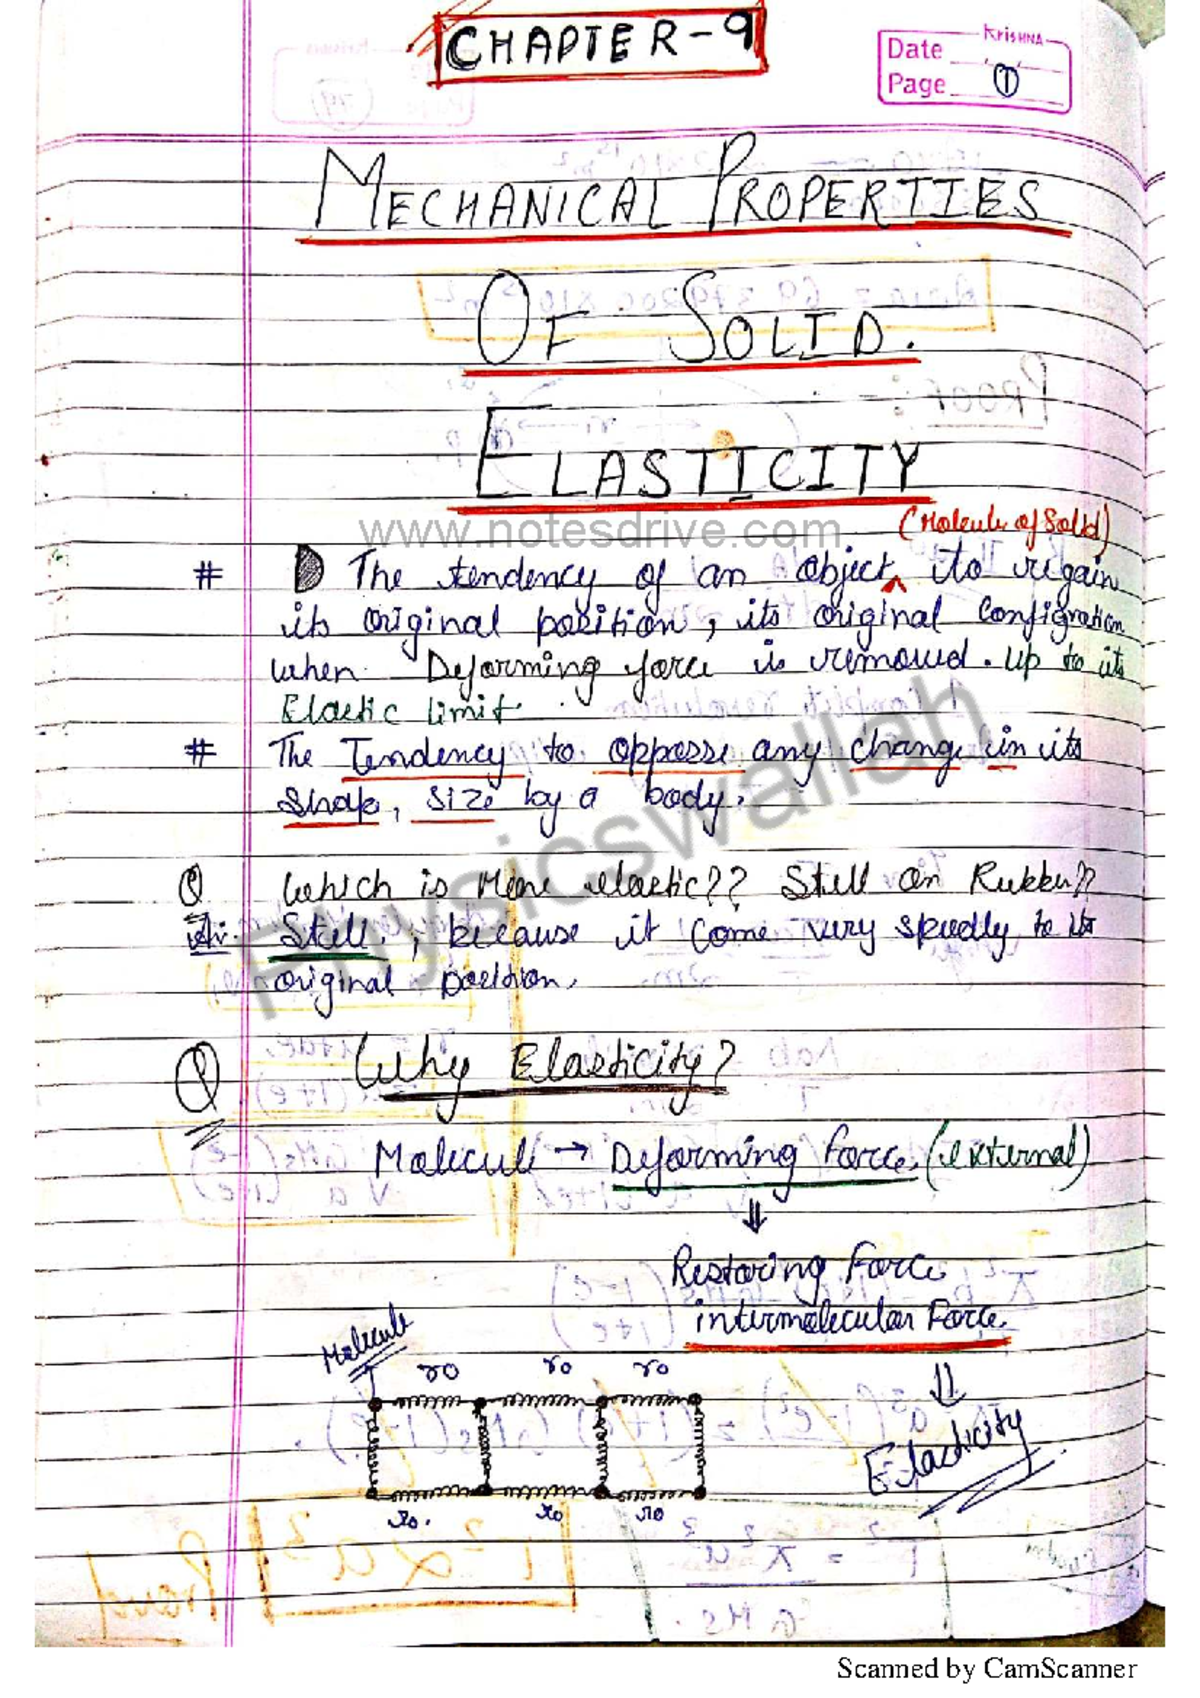 CHAPTER-9
KRISHNA
Date
Page 1
MECHANICAL PROPERTIES
OF SOLID.
ELASTICITY
www.notesdrive.com
(Molecule of Solid)
# The tendency of an object ^ to regain
its original position, its original configration
when Deforming force is removed. up to its
Elastic limit.
# The Tendency to opposse any change in its
shape, size by a body.
Physicswallah
Q Which is More elastic?? Steel or Rubber??
Steel, because it come very speedly to its
original position.
Q Why Elasticity?
Molecule → Deforming Force (external)
⇓
Restoring Force
intermolecular Force.
Molecule
r0 r0 r0
⇓
Elasticity
r0. r0 r0
Scanned by CamScanner